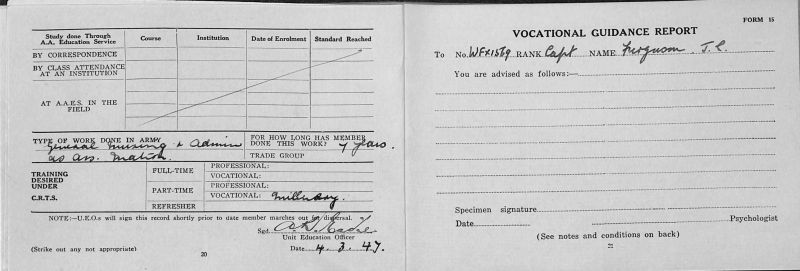 Study done Through
A.A. Education Service
Course
Institution
Date of Enrolment
Standard Reached
BY CORRESPONDENCE
BY CLASS ATTENDANCE
AT AN INSTITUTION
AT A.A.E.S. IN THE
FIELD
TYPE OF WORK DONE IN ARMY
General nursing & Admin
as Ass. Matron.
FOR HOW LONG HAS MEMBER
DONE THIS WORK? 7 years.
TRADE GROUP
TRAINING
DESIRED
UNDER
C.R.T.S.
FULL-TIME
PROFESSIONAL:
VOCATIONAL:
PART-TIME
PROFESSIONAL:
VOCATIONAL: Millinery.
REFRESHER
NOTE:—U.E.O.s will sign this record shortly prior to date member marches out for dispersal.
Sgd.
Unit Education Officer
(Strike out any not appropriate)
Date 4.3.47.
20
FORM 15
VOCATIONAL GUIDANCE REPORT
To No. WFX1569 RANK Capt NAME Ferguson. J. C.
You are advised as follows:—
Specimen signature
Date
Psychologist
(See notes and conditions on back)
21